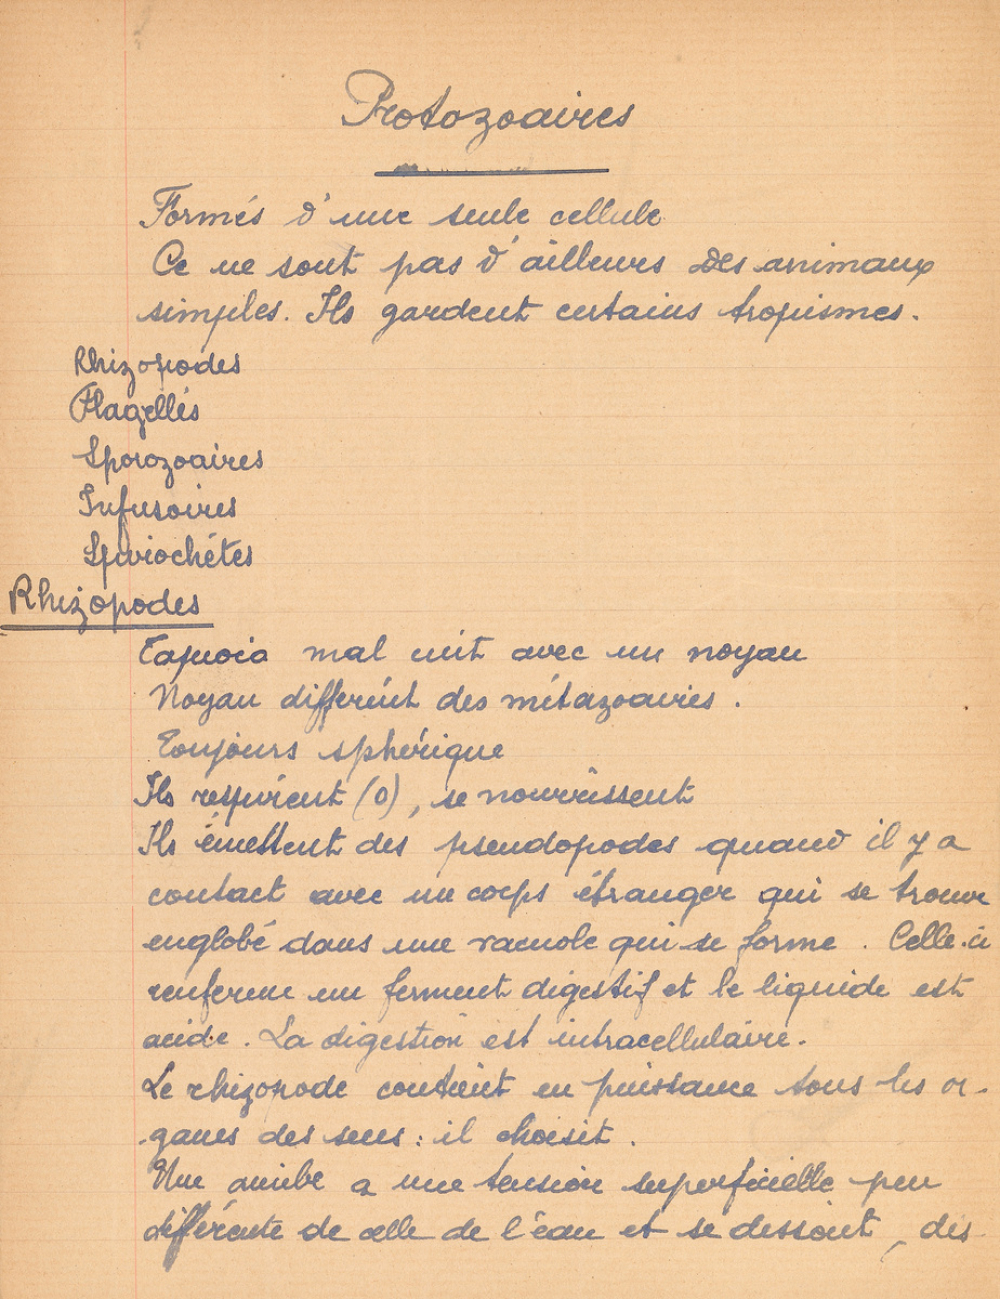 Protozoaires
Formés d'une seule cellule
Ce ne sont pas d'ailleurs des animaux
simples. Ils gardent certains tropismes.
Rhizopodes
Flagellés
Sporozoaires
Infusoires
Spirochétes
Rhizopodes
Tapioca mal cuit avec un noyau
Noyau différent des métazoaires.
Toujours sphérique
Ils respirent (O), se nourrissent
Ils émettent des pseudopodes quand il y a
contact avec un corps étranger qui se trouve
englobé dans une vacuole qui se forme. Celle-ci
renferme un ferment digestif et le liquide est
acide. La digestion est intracellulaire.
Le rhizopode contient en puissance tous les or-
-ganes des sens : il choisit.
Une amibe a une tension superficielle peu
différente de celle de l'eau et se dissout, des